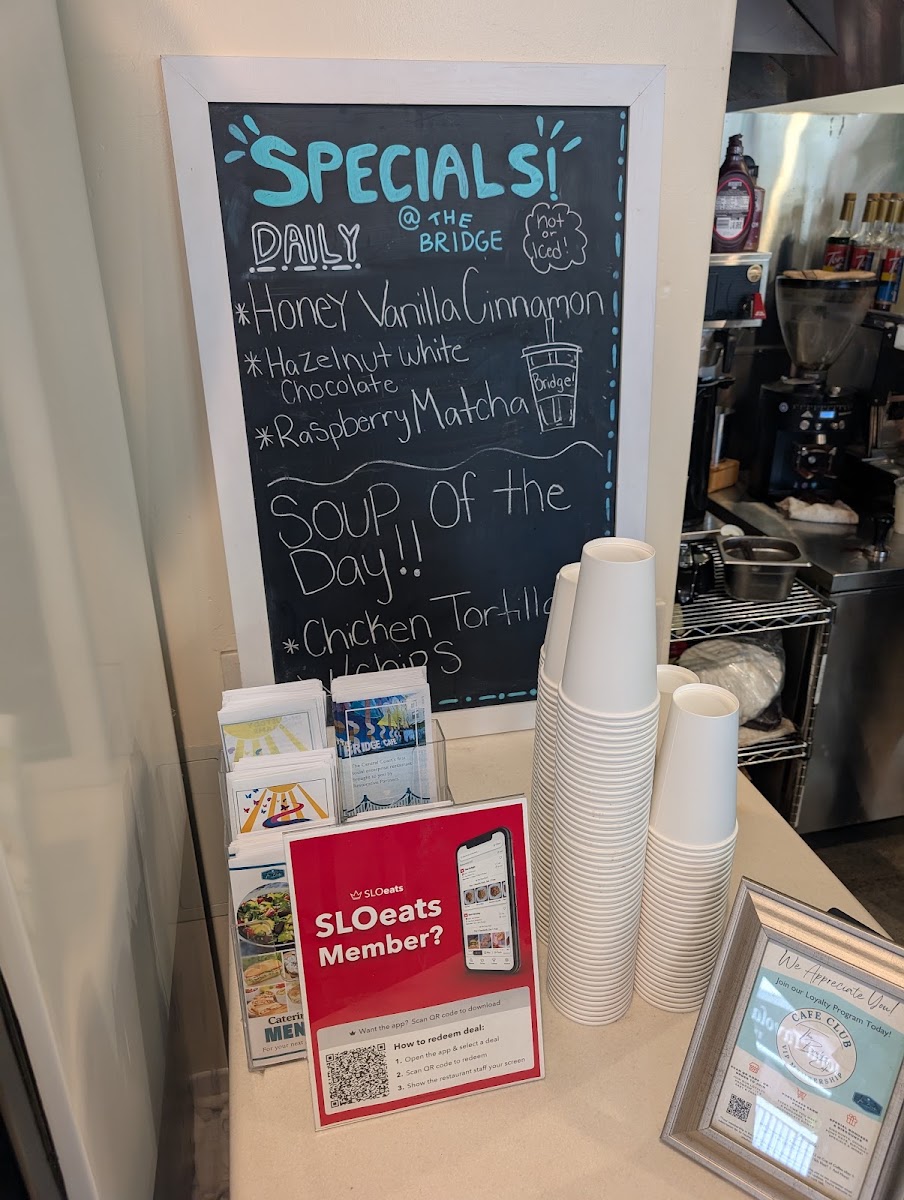 SPECIALS!
DAILY
@ THE
BRIDGE
hot
or
Iced!
*Honey Vanilla Cinnamon
*Hazelnut white
Chocolate
*Raspberry Matcha
Bridge!
Soup of the
Day!!
*Chicken Tortilla
W/chips
BRIDGE CAFE
SLOeats
SLOeats
Member?
Want the app? Scan QR code to download
How to redeem deal:
1. Open the app & select a deal
2. Scan QR code to redeem
3. Show the restaurant staff your screen
Caterin
MEN
We Appreciate You!
Join our Loyalty Program Today!
CAFE CLUB
MEMBERSHIP